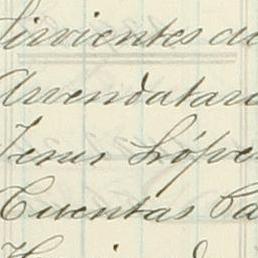 Sirvientes ac
Arrendatari
Jesus López
Cuentas Pa